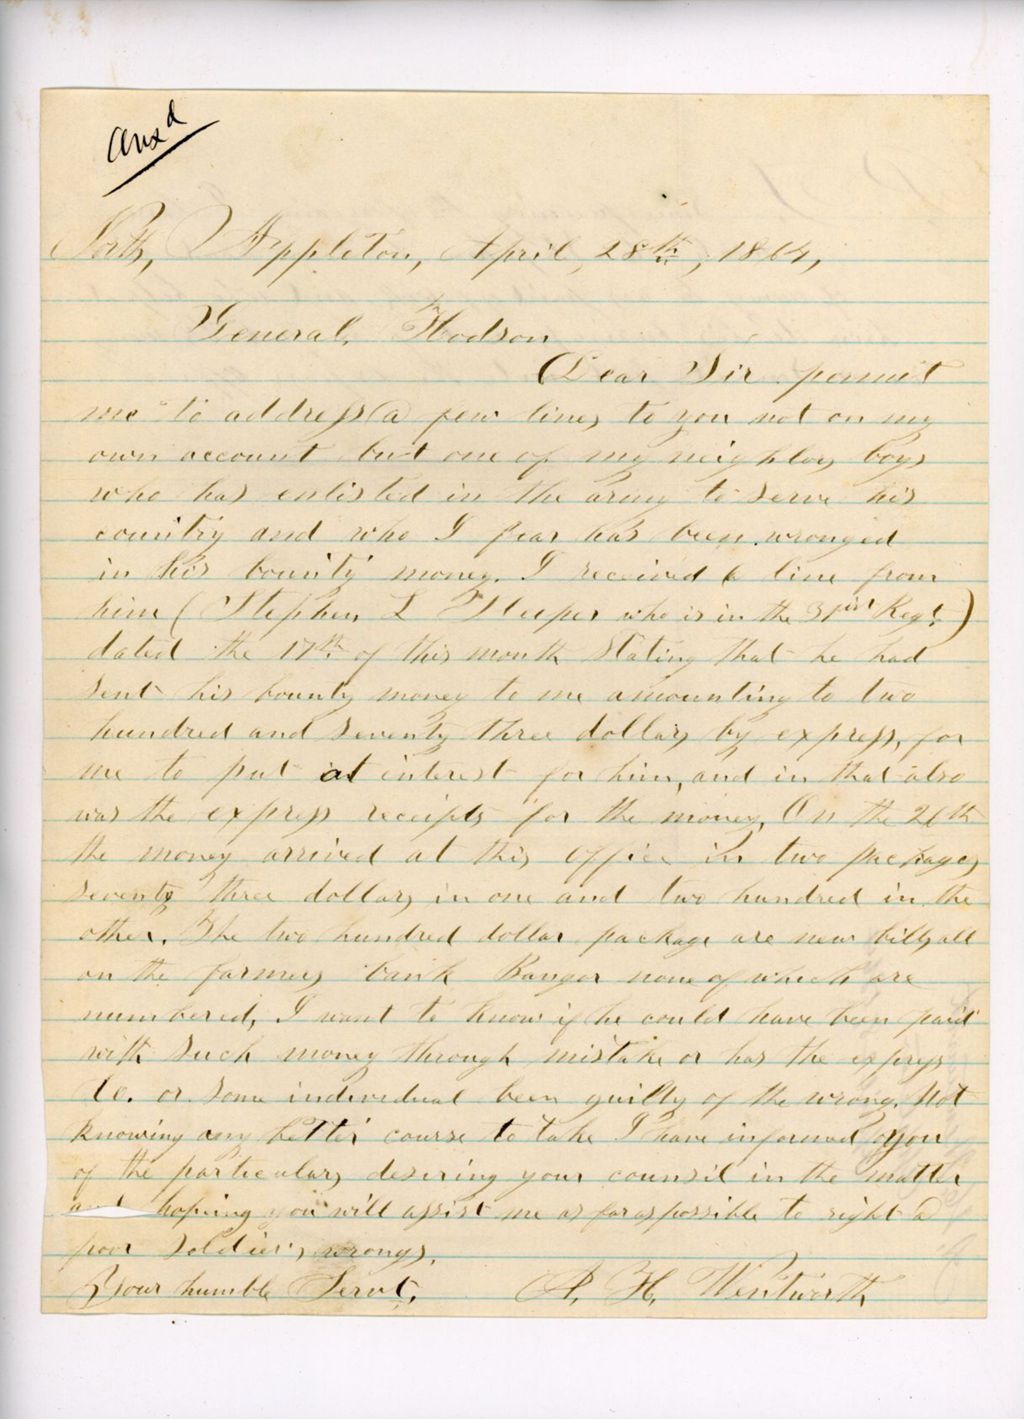 Ansd
North, Appleton, April, 28th, 1864,
General, Hodson
Dear Sir permit
me to address a few lines to you not on my
own account but one of my neighbors boys
who has enlisted in the army to serve his
country and who I fear has been wronged
in his bounty money. I received a line from
him (Stephen L Sleeper who is in the 31st Regt.)
dated the 17th of this month stating that he had
sent his bounty money to me amounting to two
hundred and seventy three dollars by express, for
me to put at interest for him, and in that also
was the express receipts for the money. On the 26th
the money arrived at this office in two packages
seventy three dollars in one and two hundred in the
other. The two hundred dollar package are new bills all
on the farmers bank Bangor none of which are
numbered, I want to know if he could have been paid
with such money through mistake or has the express
Co. or some individual been guilty of the wrong. Not
knowing any better course to take I have informed you
of the particulars desiring your counsil in the matter
and hoping you will assist me as far as possible to right a
poor soldiers wrongs.
Your humble Servt, A. H. Wentworth